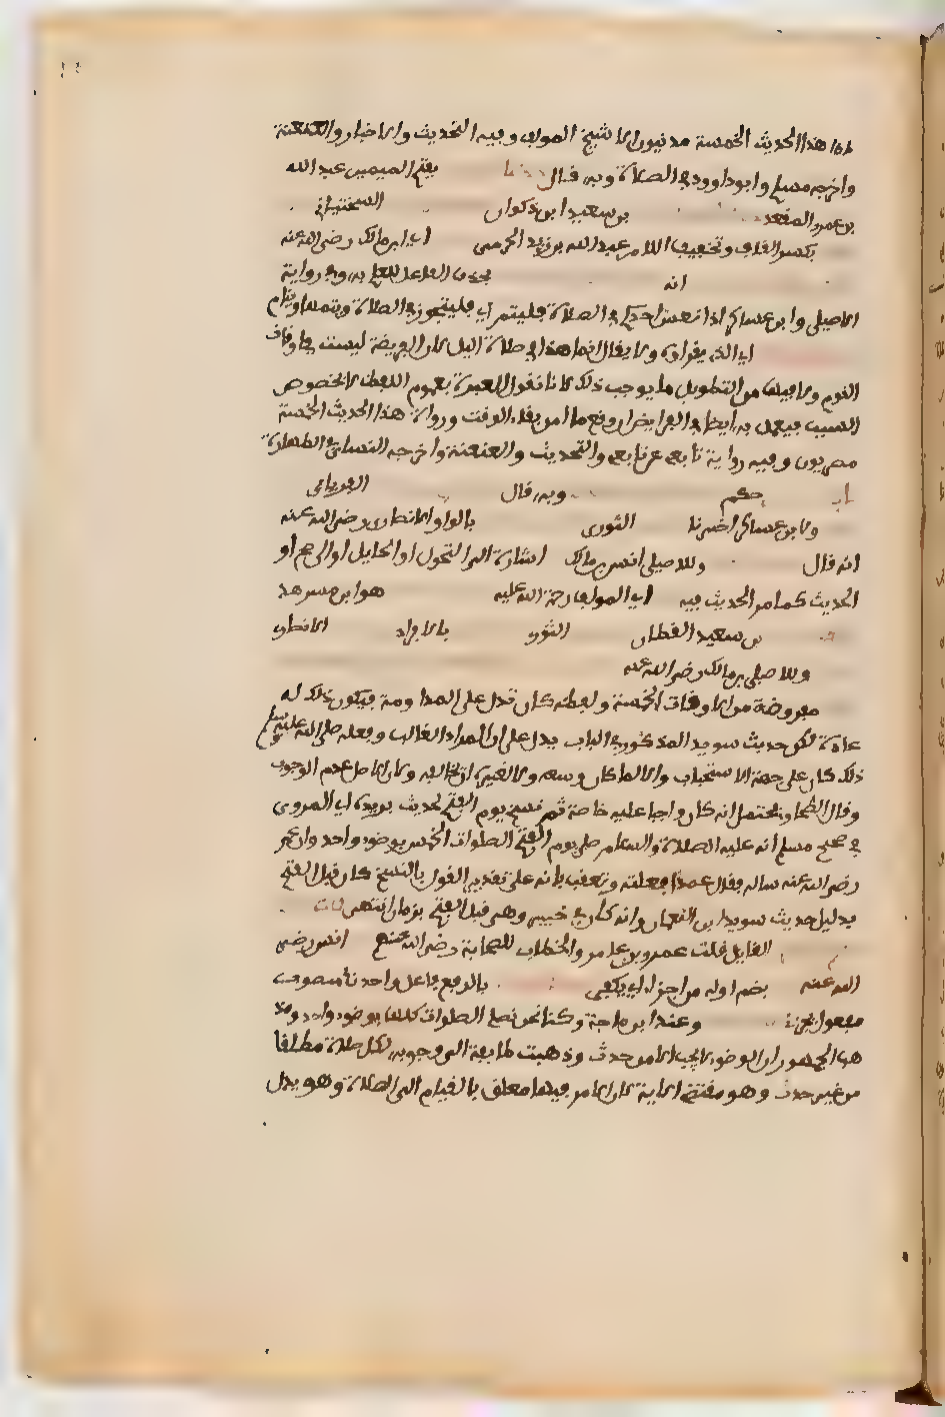 هذا الحديث الخمسة مدنيون الا شيخ المولف وفيه التحديث والاخبار والعنعنة
واخرجه مسلم وابو داوود في الصلاة وبه قال حدثنا بفتح الميمين عبد الله
بن عمرو المقعد بن سعيد ابن ذكوان السختياني
بكسر القاف وتخفيف اللام عبد الله بن زيد الجرمي اي ابن مالك رضي الله عنه
انه بحذف الفاعل للعلم به وفي رواية
الاصيلي وابن عساكر اذا نعس احدكم في الصلاة فلينم اي فليتجوز في الصلاة ويتمها وينام
اي الذي يقراه ولا يقال انما هذا في صلاة اليل لان الفريضة ليست في اوقات
النوم ولا فيها من التطويل ما يوجب ذلك لانا نقول العبرة بعموم اللفظ لا بخصوص
السبب فيعمل به ايضا في الفرايض ان وقع ما امن بقاء الوقت ورواة هذا الحديث الخمسة
مصريون وفيه رواية تابعي عن تابعي والتحديث والعنعنة واخرجه النساي في الطهارة
باب حكم وبه قال الفريابي
ولابن عساكر اخبرنا الثوري بالواو الانصاري رضي الله عنه
انه قال وللاصيلي انس بن مالك اشارة الى التحول او الحايل او الى صح او
الحديث كما مر الحديث فيه اي المولف رحمة الله عليه هو ابن مسرهد
بن سعيد القطان الثوري بالافراد الانصاري
وللاصيلي بن مالك رضي الله عنه
مفروضة من الاوقات الخمسة ولفظه كان تدل على المداومة فيكون ذلك له
عادة لكن حديث سويد المذكور في الباب يدل على ان المراد الغالب وفعله صلى الله عليه وسلم
ذلك كان على جهة الاستحباب والا لما كان وسعه ولا لغيره ان يخالفه ولان الاصل عدم الوجوب
وقال الطحاوي يحتمل انه كان واجبا عليه خاصة ثم نسخ يوم الفتح لحديث بريدة اي المروي
في صحيح مسلم انه عليه الصلاة والسلام صلى يوم الفتح الصلوات الخمس بوضوء واحد وان عمر
رضي الله عنه ساله فقال عمدا فعلته وتعقب بانه على تقدير القول بالنسخ كان قبل الفتح
بدليل حديث سويد ابن النعمان وانه كان في خيبر وهي قبل الفتح بزمان انتهى
القايل قلت عمرو بن عامر والخطاب للصحابة رضي الله عنهم انس رضي
الله عنه بضم اوله من اجزا اي يكفي بالرفع فاعل واحدنا منصوب
مفعول يجزئ وعند ابن ماجة وكنا نحن نصلي الصلوات كلها بوضوء واحد
الجمهور ان الوضوء لا يجب الا من حدث وذهبت طايفة الى وجوبه لكل صلاة مطلقا
من غير حدث وهو مقتضى الاية لان الامر فيها معلق بالقيام الى الصلاة وهو يدل